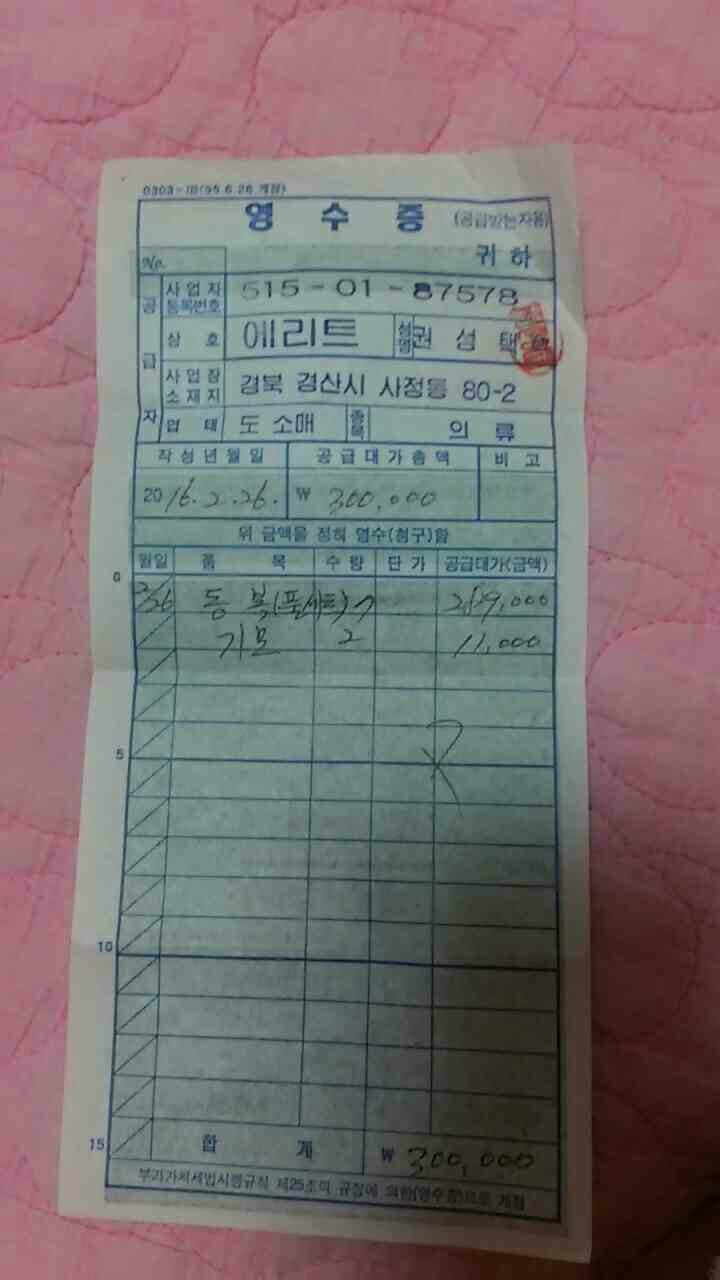 0303-1B('95.6.26 개정)
영 수 증 (공급받는자용)
No. 귀 하
공급자
사업자등록번호 515-01-87578
상 호 에리트 성명 권 성 택
사업장소재지 경북 경산시 사정동 80-2
업 태 도 소매 종목 의 류
작성년월일 공급대가총액 비 고
2016. 2. 26. ₩ 300,000
위 금액을 정히 영수(청구)함
월일 품 목 수량 단가 공급대가(금액)
2/26 동 복(풀세트) 289,000
기모 2 11,000
5
10
15
합 계 ₩ 300,000
부가가치세법시행규칙 제25조의 규정에 의한(영수증)으로 개정